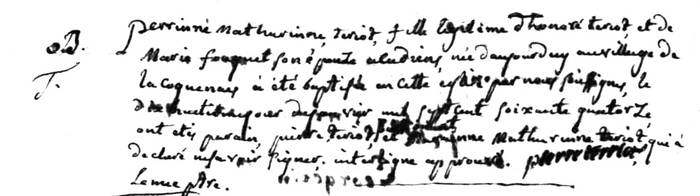 B. perrinne Mathurinne teriot, fille legitime d'honoré teriot et de
T. Marie fouquet son épouse née d'aujourduy au village de
la coquenais à été baptisée en cette eglise par nous soussignes, le
jour de janvier mil sept cent soixante quatorze
ont etés parain pierre teriot, et Mathurinne teriot, qui a
declaré ne savoir signer. interligne approuvé. pierre terriot
Lemee ptre.